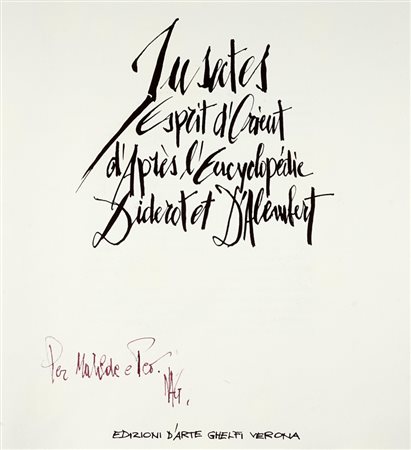 Insectes
Esprit d'Orient
d'Après l'Encyclopédie
Diderot et D'Alembert
Per Matilde e Teo.
MAG.
EDIZIONI D'ARTE GHELFI VERONA